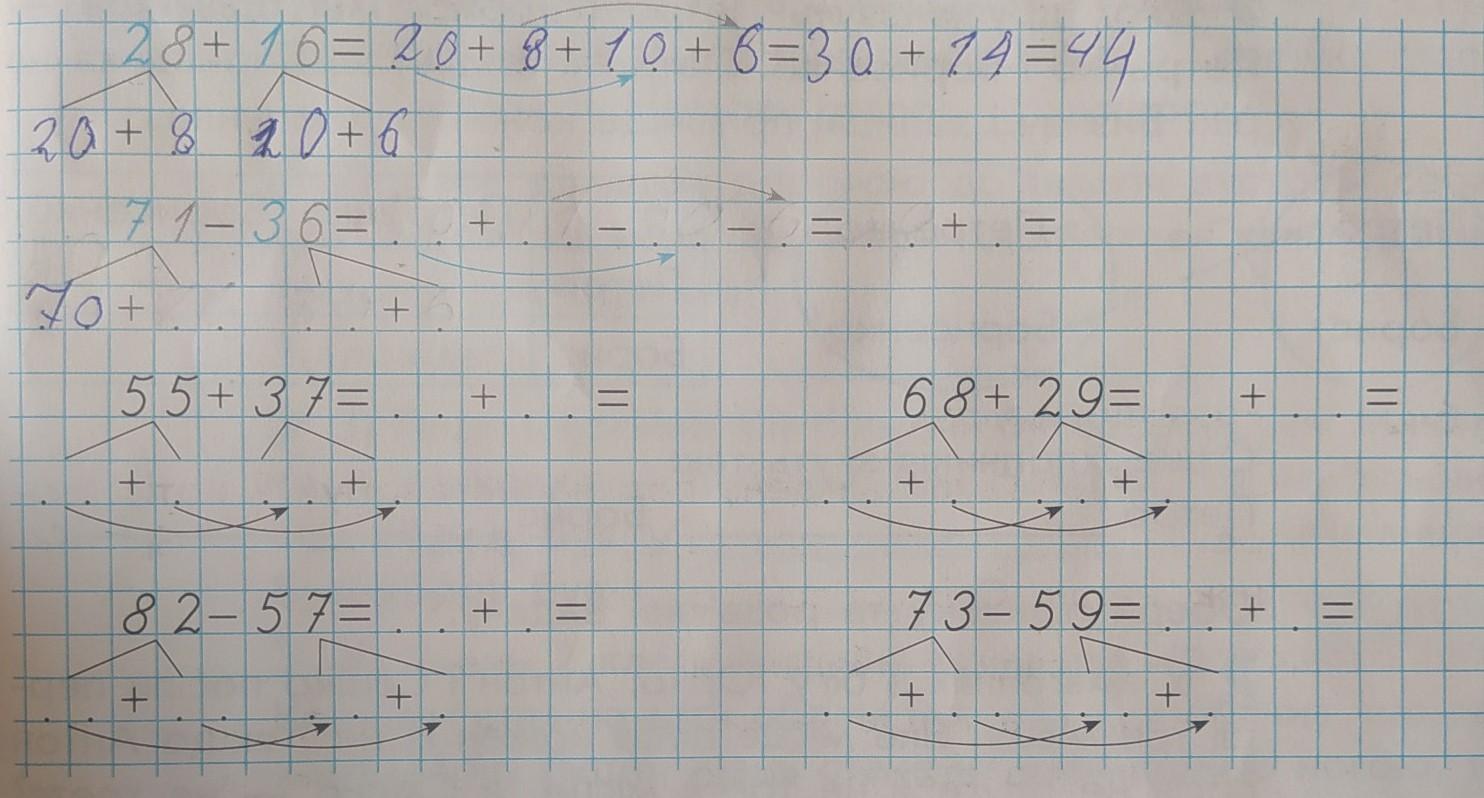 28+16=20+8+10+6=30+14=44
20+8 10+6
71-36=..+..-..-.=..+.=
70+.. ..+.
55+37=..+..= 68+29=..+..=
..+. ..+. ..+. ..+.
82-57=..+.= 73-59=..+.=
..+.. ..+. ..+.. ..+.